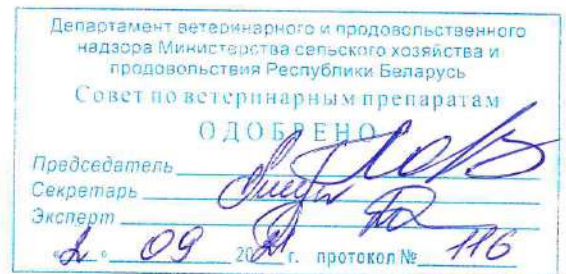 Департамент ветеринарного и продовольственного
надзора Министерства сельского хозяйства и
продовольствия Республики Беларусь
Совет по ветеринарным препаратам
ОДОБРЕНО
Председатель
Секретарь
Эксперт
«2» 09 2021 г. протокол № 116